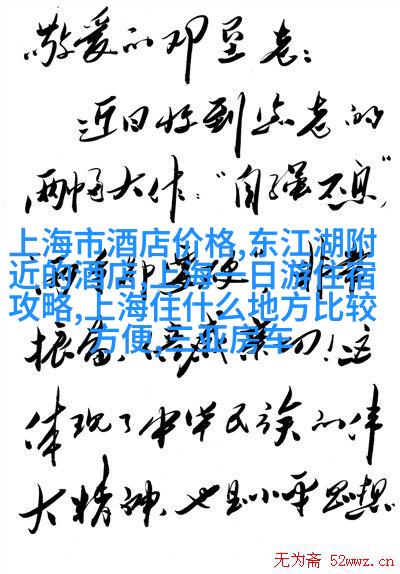 敬爱的邓垦老：
近日收到您老的
两幅大作："自强不息"
上海市酒店价格,东江湖附
近的酒店,上海一日游住宿
攻略,上海住什么地方比较
方便,三亚房车
振奋、倍感亲切！这
体现了中华民族的伟
大精神，也是小平思想
无为斋 52wwz.cn